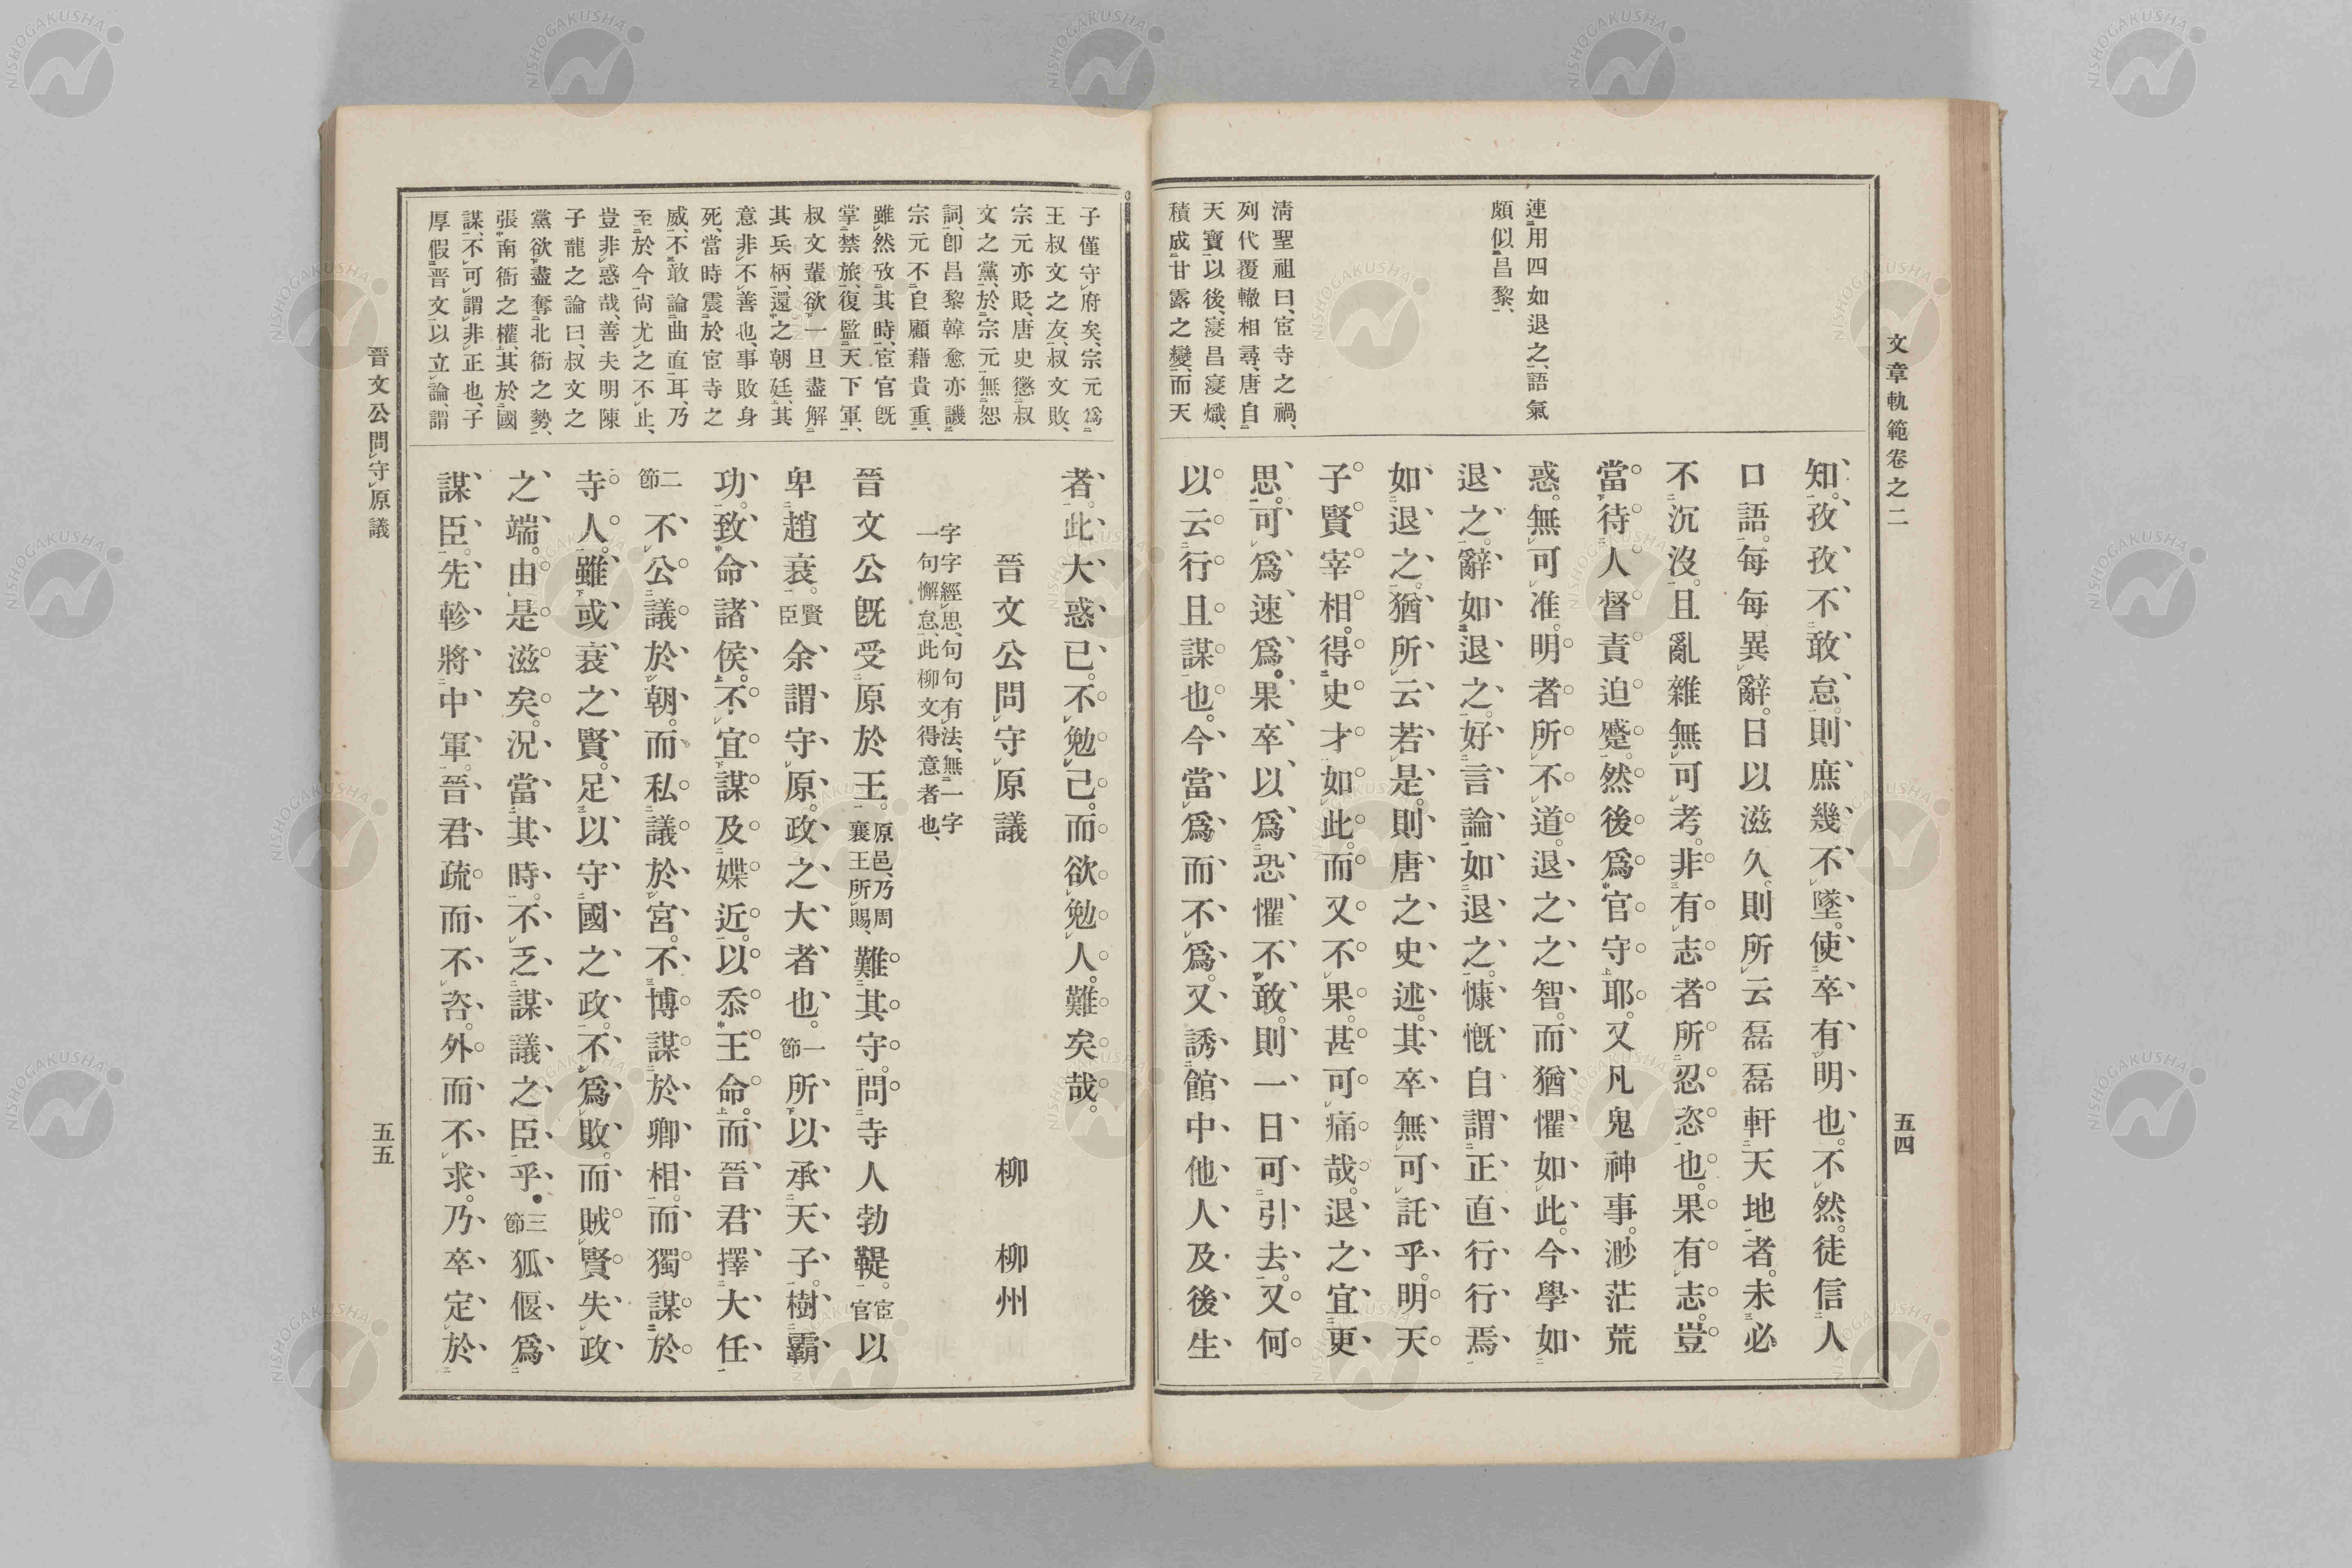 文章軌範卷之二
五四
連用四如退之、語氣
頗似昌黎、
淸聖祖曰、宦寺之禍、
列代覆轍相尋、唐自
天寶以後、寖昌寖熾、
積成甘露之變、而天
知。孜孜不敢怠。則庶幾不墜。使卒有明也。不然。徒信人
口語。每每異辭。日以滋久。則所云磊磊軒天地者。未必
不沉沒。且亂雜無可考。非有志者所忍恣也。果有志。豈
當待人督責迫蹙。然後爲官守耶。又凡鬼神事。渺茫荒
惑。無可准。明者所不道。退之之智。而猶懼如此。今學如
退之。辭如退之。好言論如退之。慷慨自謂正直行行焉
如退之。猶所云若是。則唐之史述。其卒無可託乎。明天
子賢宰相。得史才如此。而又不果。甚可痛哉。退之宜更
思。可爲速爲。果卒以爲恐懼不敢。則一日可引去。又何
以云行且謀也。今當爲而不爲。又誘館中他人及後生
子僅守府矣、宗元爲
王叔文之友、叔文敗、
宗元亦貶、唐史懲叔
文之黨、於宗元無恕
詞、卽昌黎韓愈亦譏
宗元不自顧藉貴重、
雖然攷其時、宦官旣
掌禁旅、復監天下軍、
叔文輩、欲一旦盡解
其兵柄、還之朝廷、其
意非不善也、事敗身
死、當時震於宦寺之
威、不敢論曲直耳、乃
至於今、尙尤之不止、
豈非惑哉、善夫明陳
子龍之論曰、叔文之
黨欲盡奪北衙之勢、
張南衙之權、其於國
謀、不可謂非正也、子
厚假晉文以立論、謂
者。此大惑已。不勉己。而欲勉人。難矣哉。
晉文公問守原議　柳柳州
字字經思、句句有法、無一字
一句懈怠、此柳文得意者也、
晉文公旣受原於王。原邑、乃周襄王所賜、難其守。問寺人勃鞮。宦官以
卑趙衰。賢臣余謂守原。政之大者也。一節所以承天子。樹霸
功。致命諸侯。不宜謀及媟近。以忝王命。而晉君擇大任
二節不公議於朝。而私議於宮。不博謀於卿相。而獨謀於
寺人。雖或衰之賢。足以守國之政。不爲敗。而賊賢失政
之端。由是滋矣。況當其時。不乏謀議之臣乎。三節狐偃爲
謀臣。先軫將中軍。晉君疏而不咨。外而不求。乃卒定於
晉文公問守原議
五五
NISHOGAKUSHA